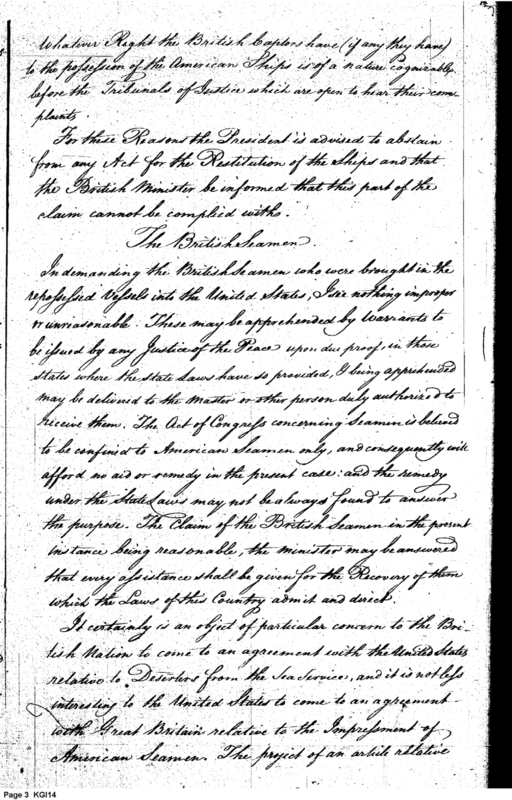 Whatever Right the British Captors have (if any they have)
to the possession of the American Ships is of a nature cognizable
before the Tribunals of Justice which are open to hear their com
plaints.
For these Reasons the President is advised to abstain
from any Act for the Restitution of the Ships and that
the British Minister be informed that this part of the
claim cannot be complied with.
The British Seamen.
In demanding the British Seamen who were brought in the
repossessed Vessels into the United States, I see nothing improper
or unreasonable. These may be apprehended by Warrants to
be issued by any Justice of the Peace upon due proof, in those
States where the State Laws have so provided, & being apprehended
may be delivered to the Master or other person duly authorized to
receive them. The Act of Congress concerning Seamen is believed
to be confined to American Seamen only, and consequently will
afford no aid or remedy in the present case: and the remedy
under the State Laws may not be always found to answer
the purpose. The Claim of the British Seamen in the present
instance being reasonable, the Minister may be answered
that every assistance shall be given for the Recovery of them
which the Laws of this Country admit and direct.
It certainly is an object of particular concern to the Bri-
tish Nation to come to an agreement with the United States
relative to Deserters from the Sea Service, and it is not less
interesting to the United States to come to an agreement
with Great Britain relative to the Impressment of
American Seamen. The project of an article relative
Page 3 KGI14